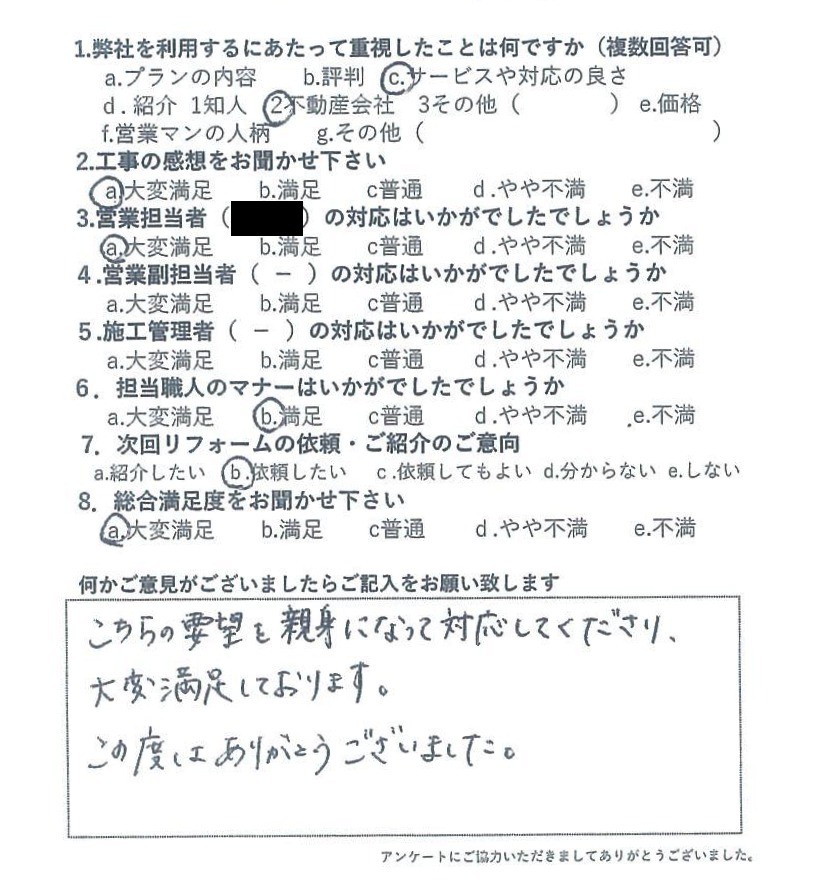 1.弊社を利用するにあたって重視したことは何ですか（複数回答可）
a.プランの内容 b.評判 c.サービスや対応の良さ
d.紹介 1知人 2不動産会社 3その他（ ） e.価格
f.営業マンの人柄 g.その他（ ）
2.工事の感想をお聞かせ下さい
a.大変満足 b.満足 c普通 d.やや不満 e.不満
3.営業担当者（ ）の対応はいかがでしたでしょうか
a.大変満足 b.満足 c普通 d.やや不満 e.不満
4.営業副担当者（ － ）の対応はいかがでしたでしょうか
a.大変満足 b.満足 c普通 d.やや不満 e.不満
5.施工管理者（ － ）の対応はいかがでしたでしょうか
a.大変満足 b.満足 c普通 d.やや不満 e.不満
6．担当職人のマナーはいかがでしたでしょうか
a.大変満足 b.満足 c普通 d.やや不満 e.不満
7．次回リフォームの依頼・ご紹介のご意向
a.紹介したい b.依頼したい c.依頼してもよい d.分からない e.しない
8．総合満足度をお聞かせ下さい
a.大変満足 b.満足 c普通 d.やや不満 e.不満
何かご意見がございましたらご記入をお願い致します
こちらの要望を親身になって対応してくださり、
大変満足しております。
この度はありがとうございました。
アンケートにご協力いただきましてありがとうございました。